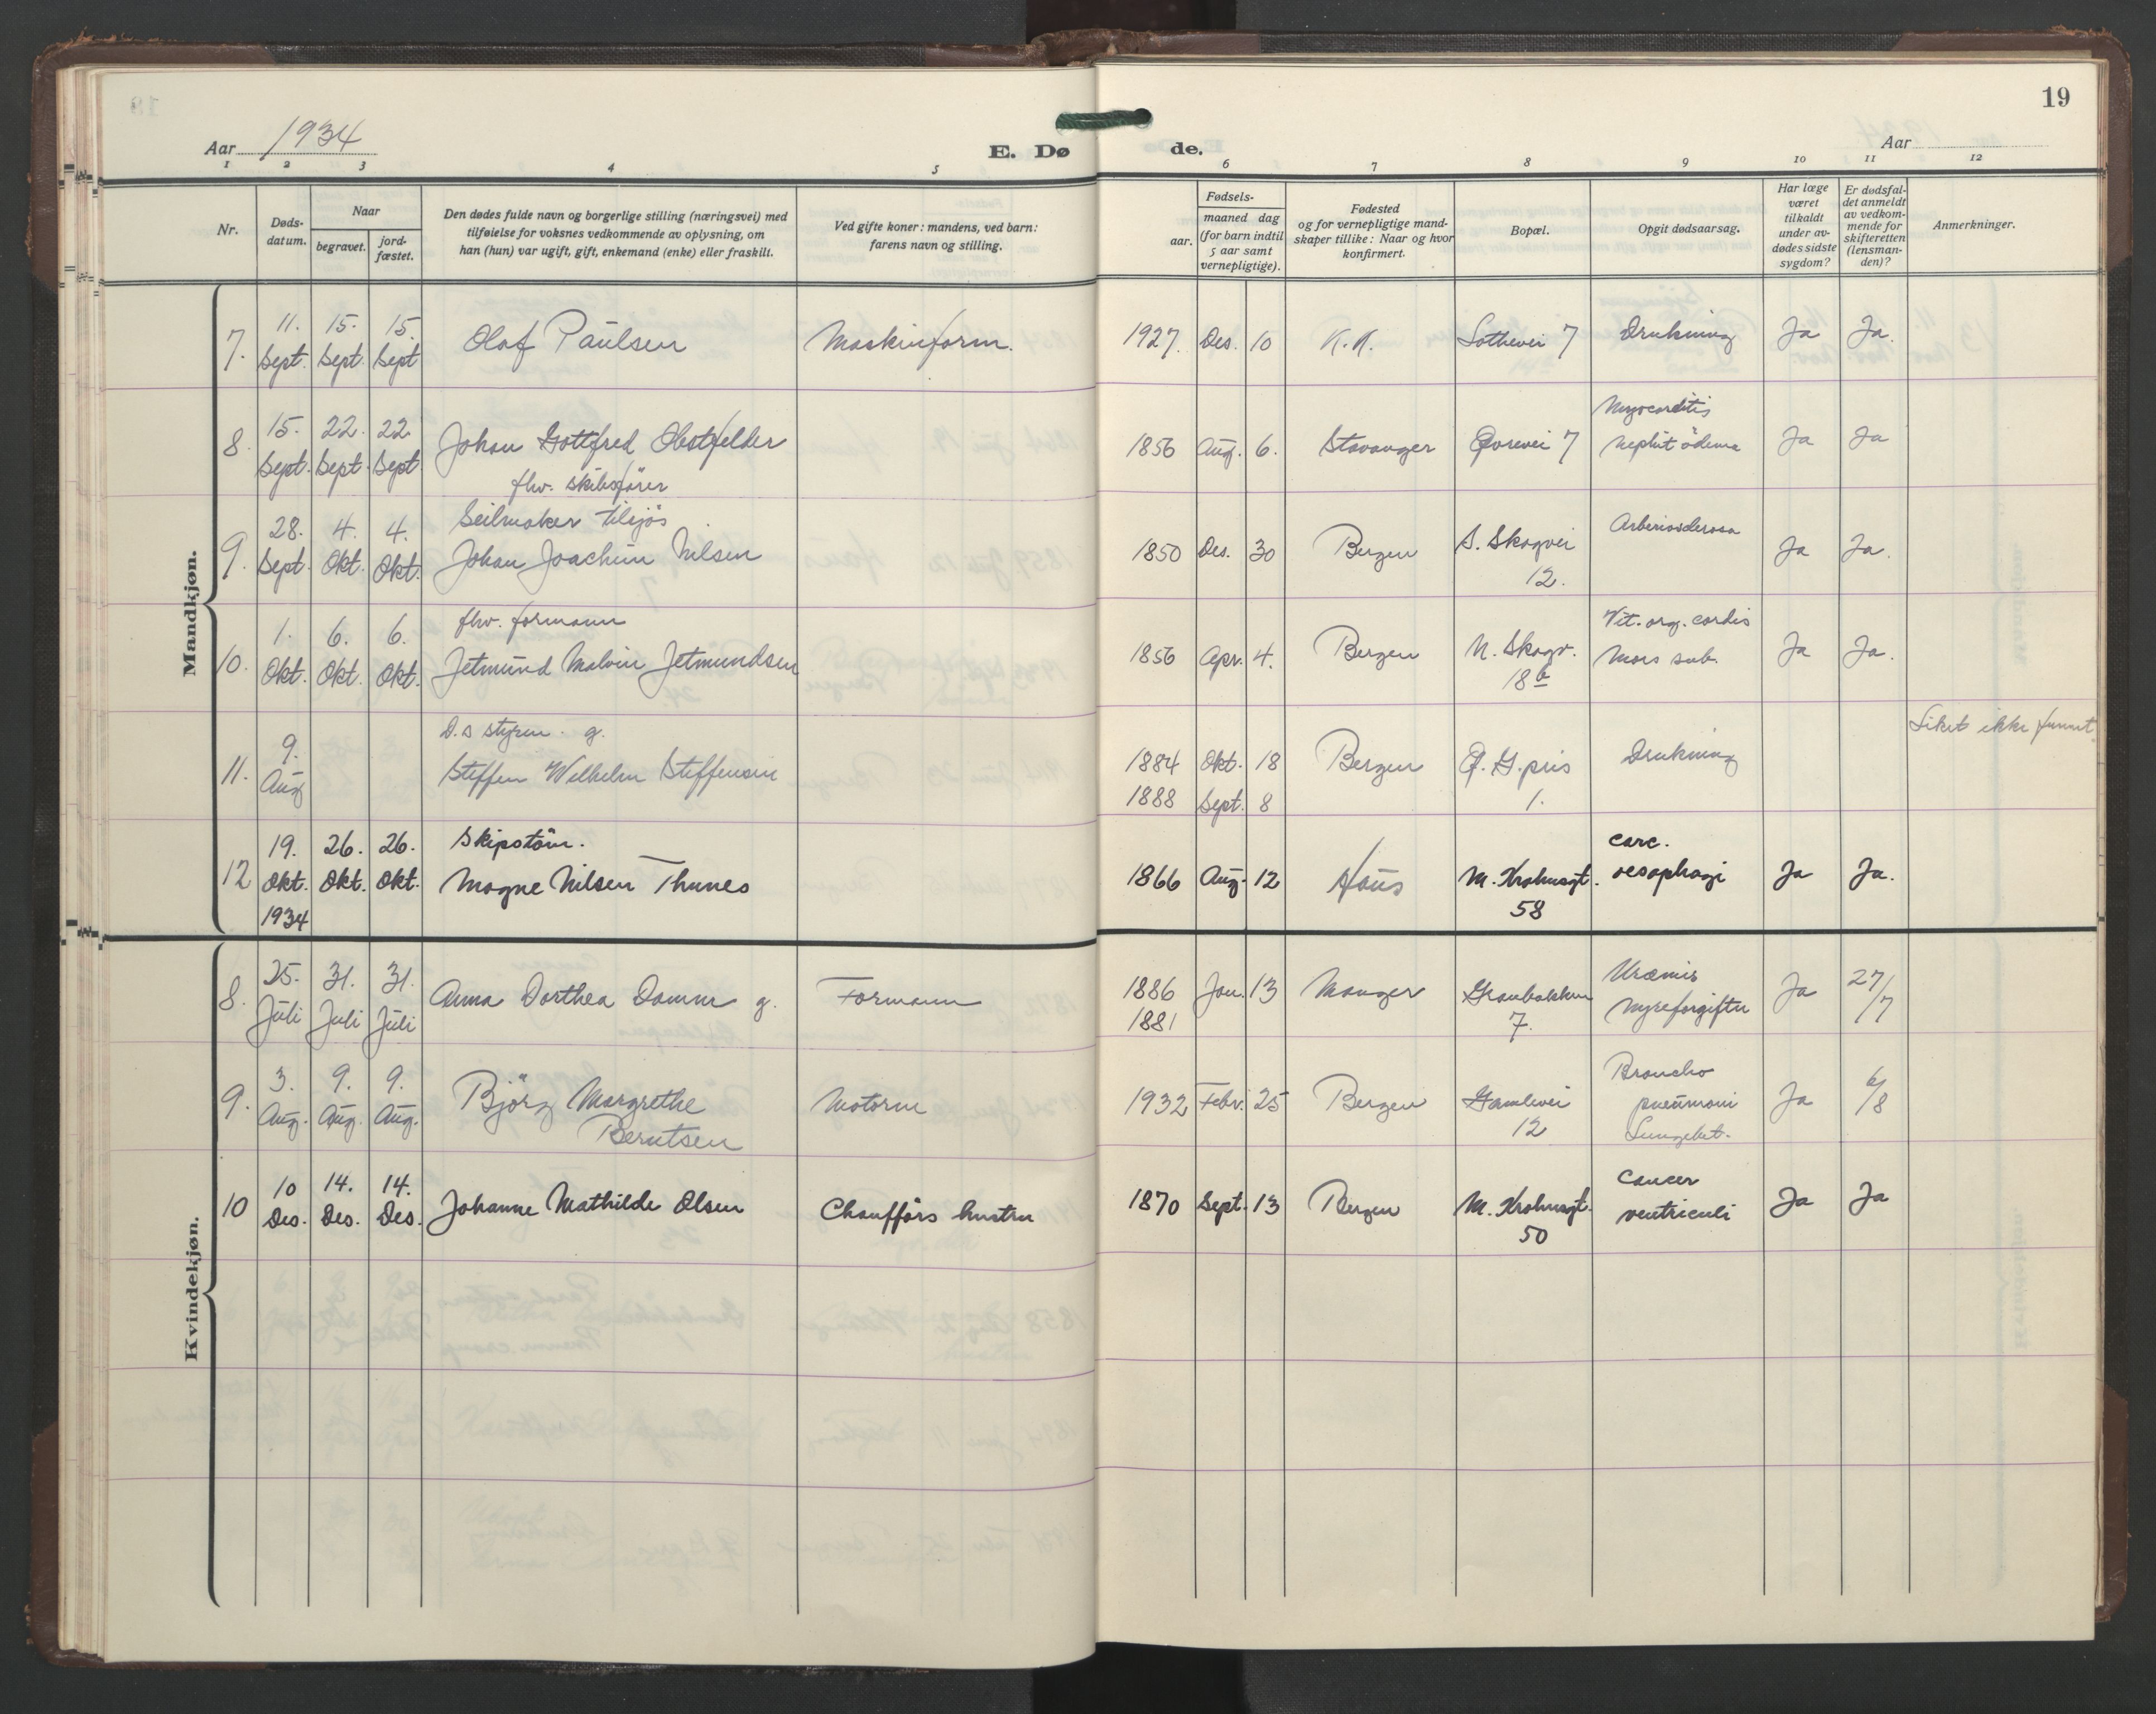 19
Aar 1934
E. Dø de.
Aar
1 2 3 4 5 6 7 8 9 10 11 12
Nr.
Døds-
datum.
Naar
begravet.
jord-
fæstet.
Den dødes fulde navn og borgerlige stilling (næringsvei) med
tilføielse for voksnes vedkommende av oplysning, om
han (hun) var ugift, gift, enkemand (enke) eller fraskilt.
Ved gifte koner: mandens, ved barn:
farens navn og stilling.
Fødsels-
aar.
maaned dag
(for barn indtil
5 aar samt
vernepligtige).
Fødested
og for vernepligtige mand-
skaper tillike: Naar og hvor
konfirmert.
Bopæl.
Opgit dødsaarsag.
Har læge
været
tilkaldt
under av-
dødes sidste
sygdom?
Er dødsfal-
det anmeldt
av vedkom-
mende for
skifteretten
(lensman-
den)?
Anmerkninger.
Mandkjøn.
7. 11. Sept. 15. Sept. 15. Sept
Olaf Paulsen
Maskinform.
1927. Des. 10 K.K.
7
Drukning
Ja Ja.
8. 15. Sept. 22. Sept. 22 Sept
Johan Gottfred Obstfelder
fhv. skibsfører
1856 Aug. 6. Stavanger
7
Myocarditis
ödema
Ja Ja
9. 28. Sept. 4. Okt. 4. Okt.
Seilmaker tilsjös
Johan Joachim Nilsen
1850 Des. 30 Bergen
S. Skogvei
12.
Ja Ja.
10. 1. Okt. 6. Okt. 6. Okt.
fhv. formann
Jetmund Malvin Jetmundsen
1856 Apr. 4. Bergen
N. Skogv.
18b
Vit. org. cordis
Mors sub.
Ja Ja.
11. 9. Aug
D.s styrm. g.
Steffen Wilhelm Steffensen
1884 Okt. 18 Bergen
1888 Sept. 8
1.
Drukning
Liket ikke funnet.
12 19. Okt. 1934 26. Okt. 26. Okt.
Skipstöm.
Mogne Nilsen Thunes
1866 Aug. 12 Haus
M. Krohnsgt.
58
carc.
oesophagi
Ja Ja.
Kvindekjøn.
8. 25. Juli 31. Juli 31. Juli
Anna Dorthea Damm g.
Formann
1886 Jan. 13 Manger
1881
7.
Uræmis
Nyreforgiftn
Ja 27/7
9. 3. Aug. 9. Aug. 9. Aug.
Björg Margrethe
Berntsen
Motorm
1932 Febr. 25 Bergen
Gamlevei
12
Broncho
pneumoni
Lungebet.
Ja 6/8
10 10 Des. 14. Des. 14. Des.
Johanne Mathilde Olsen
Chaufförs hustru
1870 Sept. 13 Bergen
M. Krohnsgt.
50
Cancer
ventriculi
Ja Ja